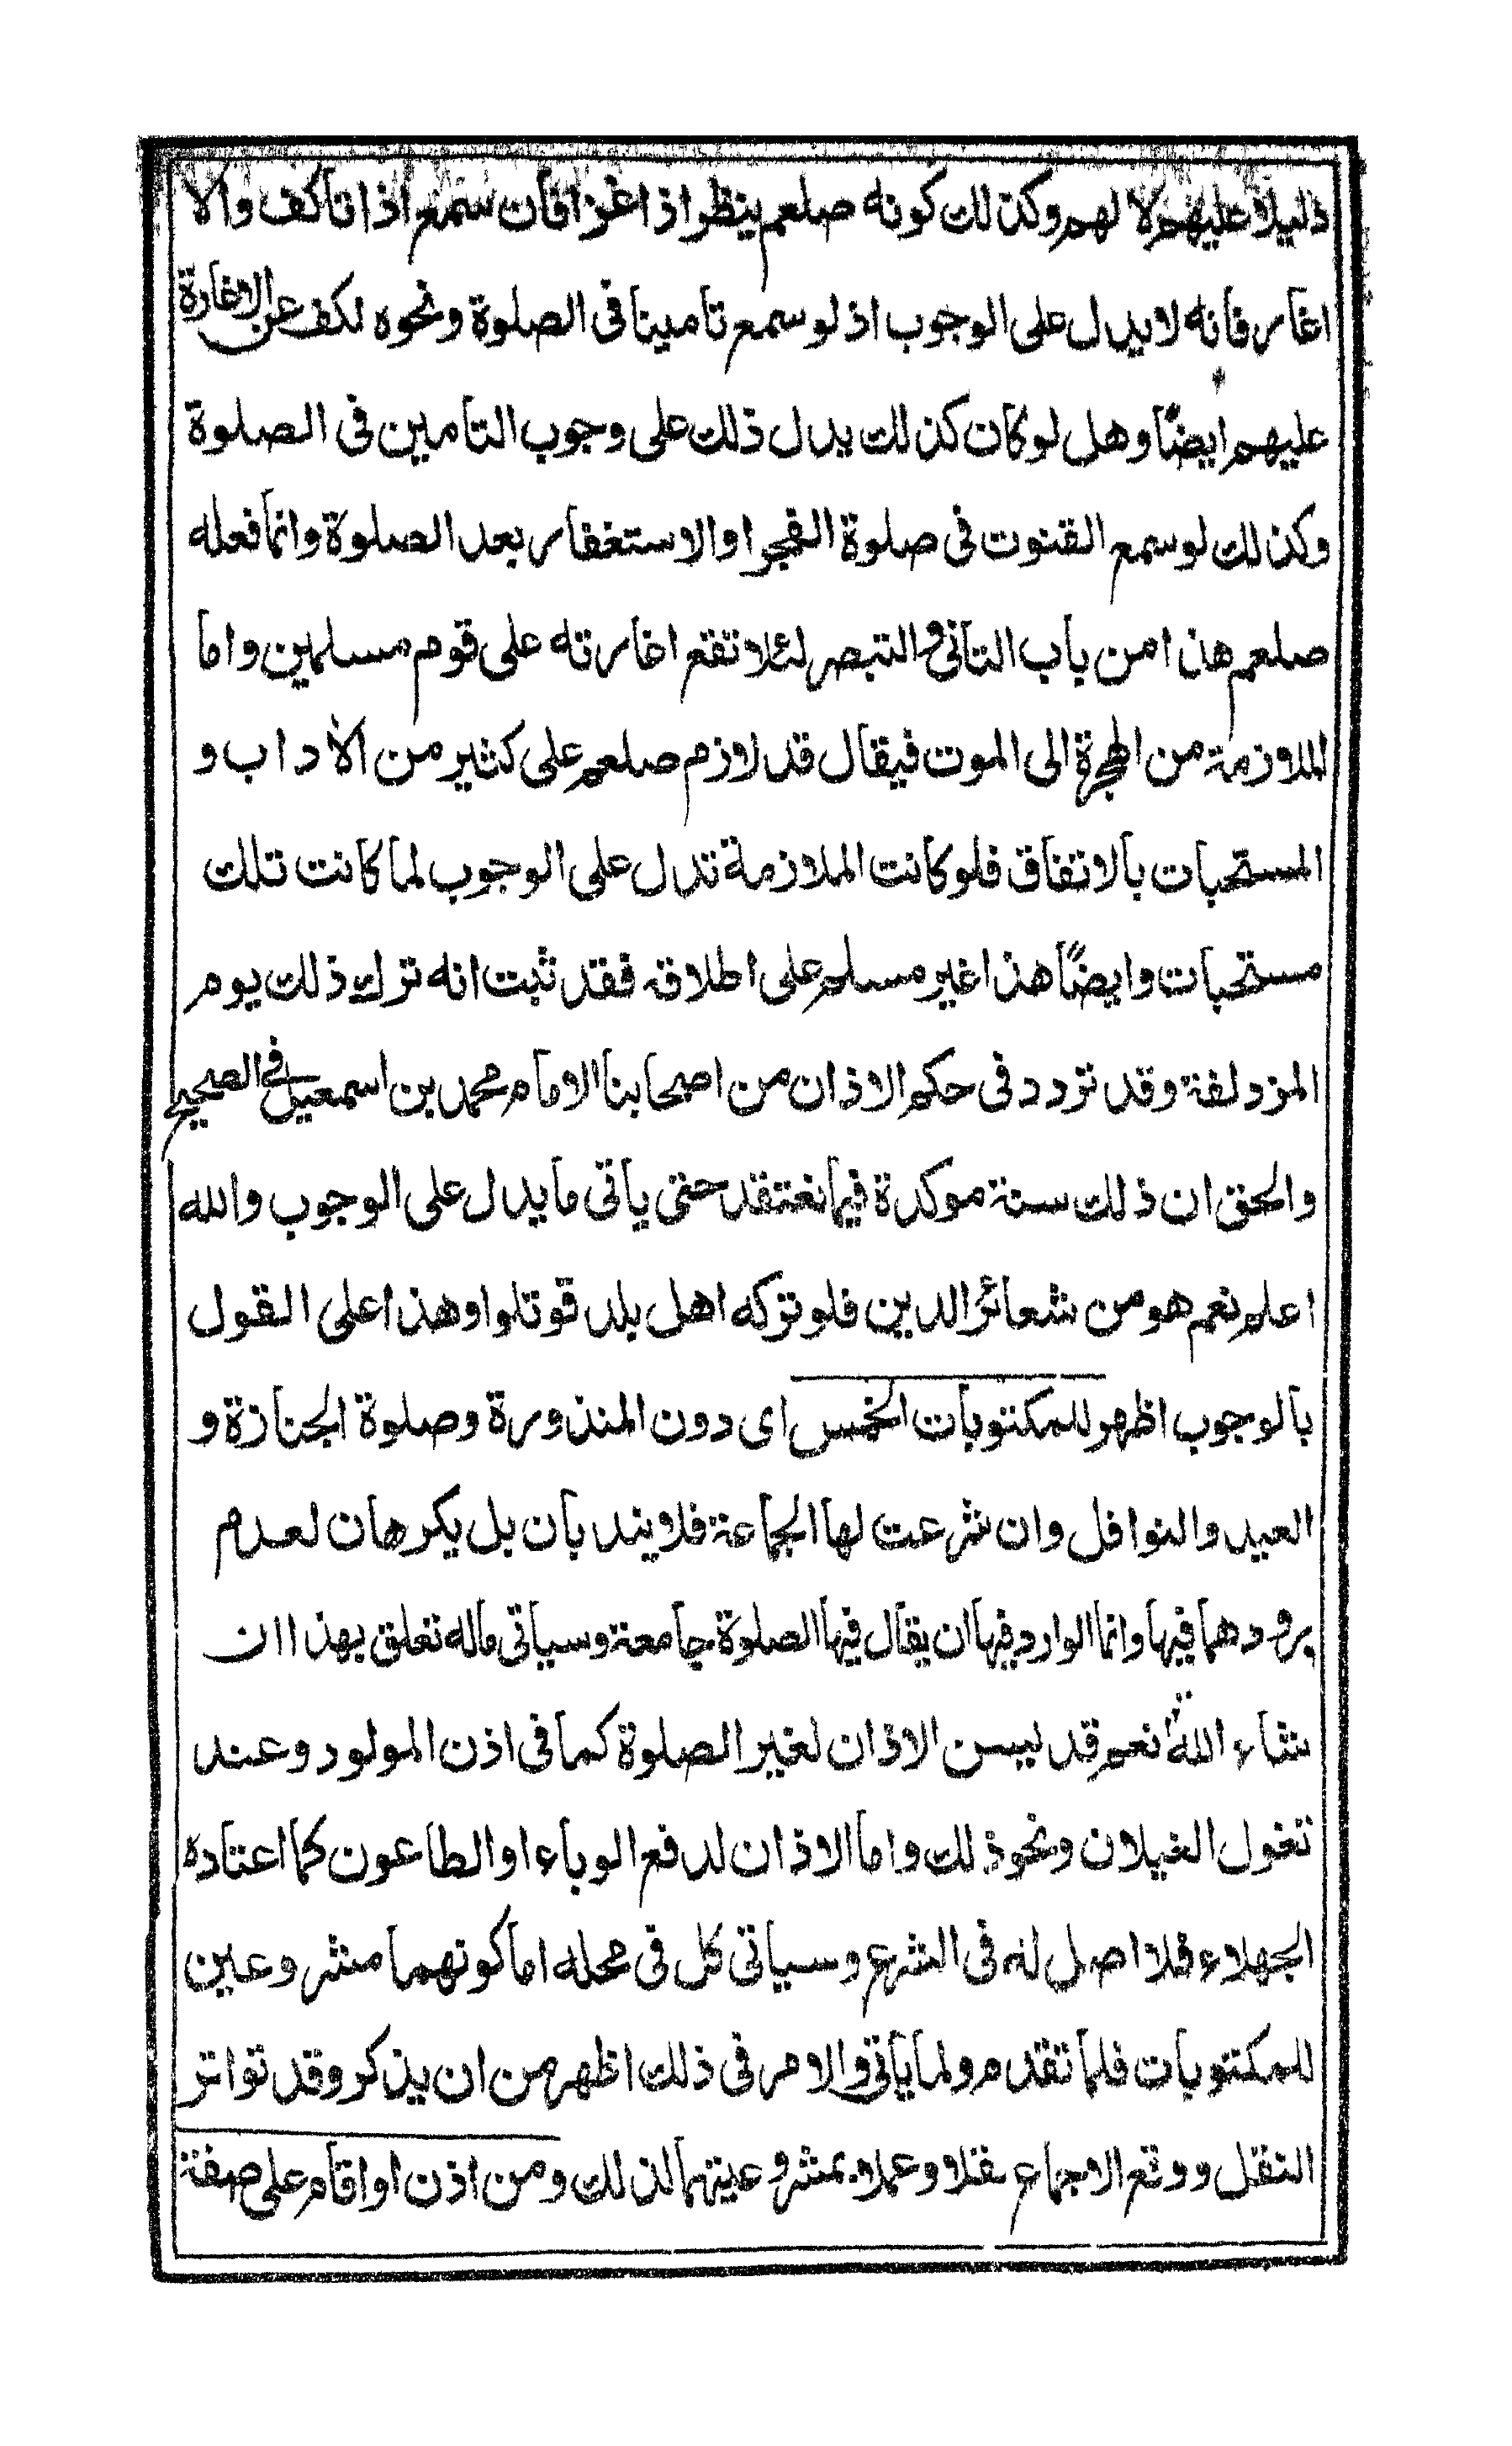 ذليلا عليهم لا لهم وكذلك كونه صلعم ينظر اذا غزا فان سمع اذانا كف والا
اغار فانه لا يدل على الوجوب اذ لو سمع تامينا فى الصلوة ونحوه لكف عن الاغارة
عليهم ايضًا وهل لو كان كذلك يدل ذلك على وجوب التامين فى الصلوة
وكذلك لو سمع القنوت فى صلوة الفجر او الاستغفار بعد الصلوة وانما فعله
صلعم هذا من باب التانى والتبصر لئلا تقع اغارته على قوم مسلمين واما
الملازمة من الهجرة الى الموت فيقال قد لازم صلعم على كثير من الأداب و
المستحبات بالاتفاق فلو كانت الملازمة تدل على الوجوب لما كانت تلك
مستحبات وايضًا هذا غير مسلم على اطلاقه فقد ثبت انه ترك ذلك يوم
المزدلفة وقد تردد فى حكم الاذان من اصحابنا الامام محمد بن اسمعيل فى الصحيح
والحق ان ذلك سنة موكدة فيما نعتقد حتى ياتى ما يدل على الوجوب والله
اعلم نعم هو من شعائر الدين فلو تركه اهل بلد قوتلوا وهذا على القول
بالوجوب اظهر للمكتوبات الخمس اى دون المنذورة وصلوة الجنازة و
العيد والنوافل وان شرعت لها الجماعة فلا يندبان بل يكرهان لعدم
ورودهما فيها وانما الوارد فيها ان يقال فيها الصلوة جامعة وسياتى ماله تعلق بهذا ان
شاء الله نعم قد ليسن الاذان لغير الصلوة كما فى اذن المولود وعند
تغول الغيلان ونحو ذلك واما الاذان لدفع الوباء او الطاعون كما اعتاده
الجهلاء فلا اصل له فى الشرع وسياتى كل فى محله اما كونهما مشروعين
للمكتوبات فلما تقدم ولما ياتى والامر فى ذلك اظهر من ان يذكر وقد تواتر
النقل ووقع الاجماع نقلا وعملا بمشروعيتهما لذلك ومن اذن او اقام على صفة